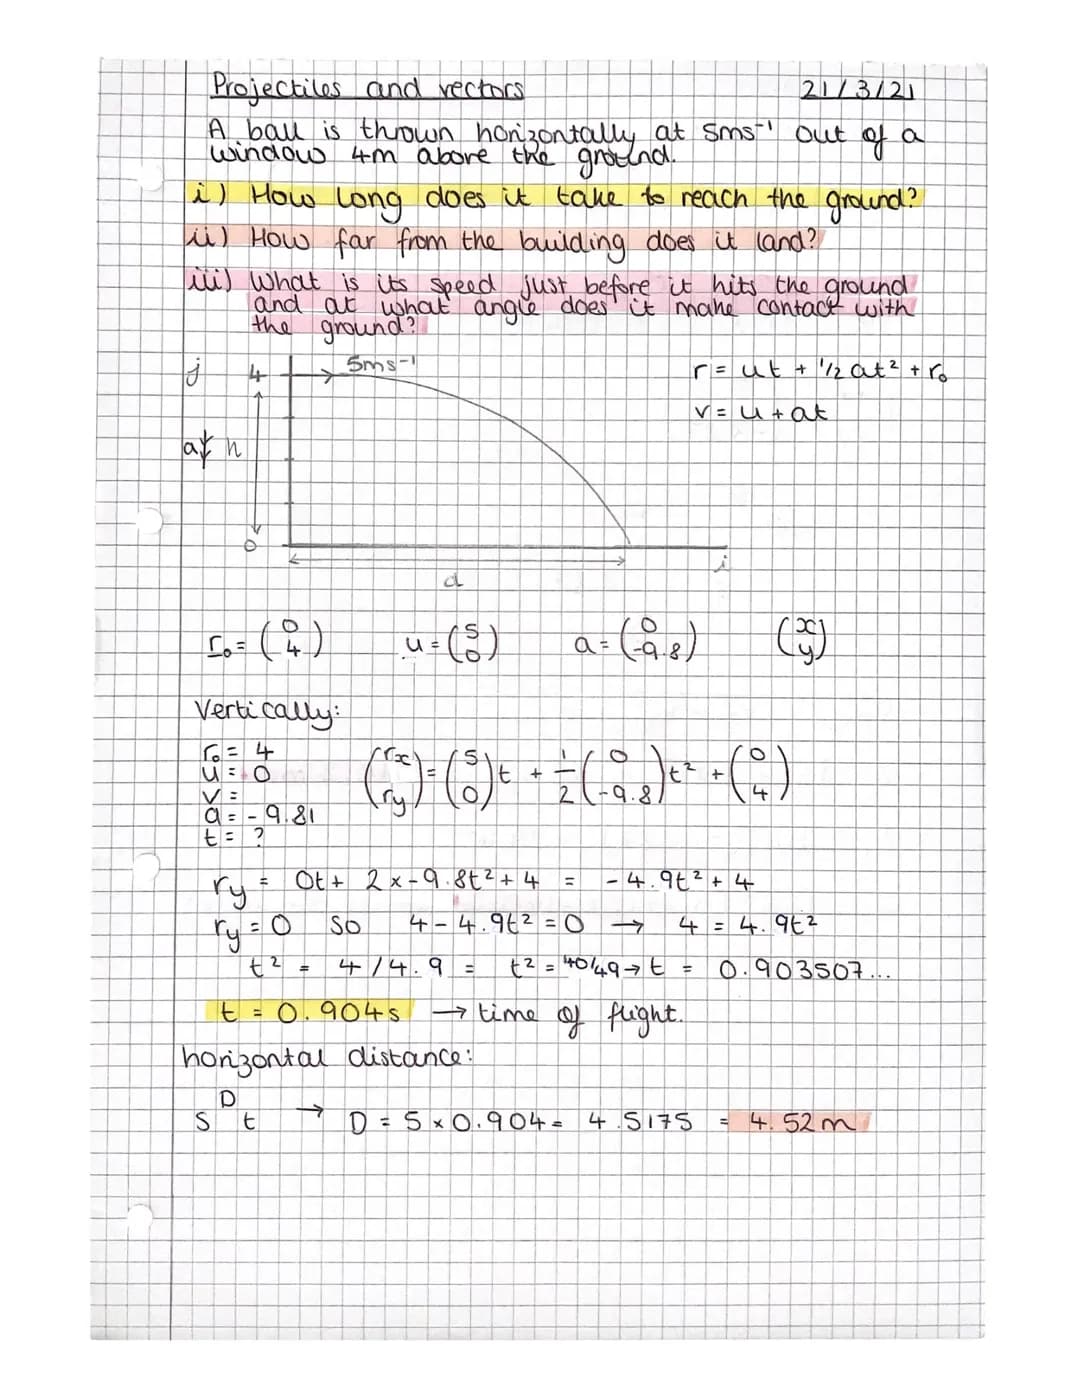 Projectiles and vectors 21/3/21
A ball is thrown horizontally at 5ms⁻¹ out of a
window 4m above the ground.
i) How long does it take to reach the ground?
ii) How far from the building does it land?
iii) What is its speed just before it hits the ground
and at what angle does it make contact with
the ground?
j 4 5ms⁻¹ r = ut + 1/2 at² + r₀
v = u + at
a↓ h
0 i
d
r₀ = (0 4) u = (5 0) a = (0 -9.8) (x y)
Vertically:
r₀ = 4
u = 0
v =
a = -9.81
t = ?
(rx ry) = (5 0)t + 1/2 (0 -9.8)t² + (0 4)
ry = 0t + 2 x -9.8t² + 4 = -4.9t² + 4
ry = 0 so 4 - 4.9t² = 0 → 4 = 4.9t²
t² = 4/4.9 = t² = 40/49 → t = 0.903507...
t = 0.904s → time of flight.
horizontal distance:
D
s t → D = 5 x 0.904 = 4.5175 = 4.52m